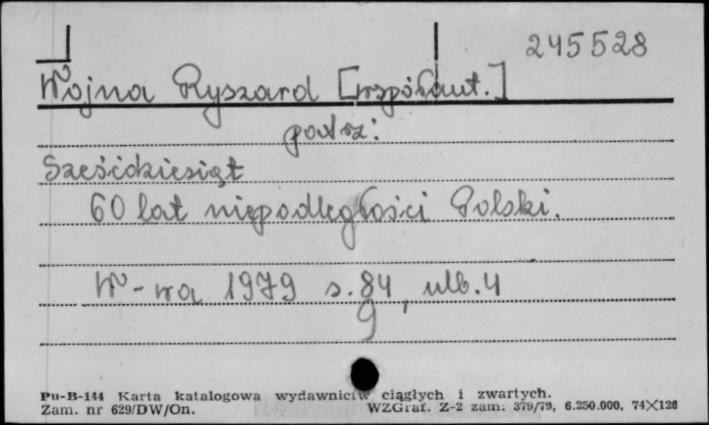 245528
Wojna Ryszard [współaut.]
patrz:
Sześćdziesiąt
60 lat niepodległości Polski.
W-wa 1979 s. 84, ulb. 4
9
Pu-B-144 Karta katalogowa wydawnictw ciągłych i zwartych.
Zam. nr 629/DW/On. WZGraf. Z-2 zam. 379/79, 6.250.000, 74×126